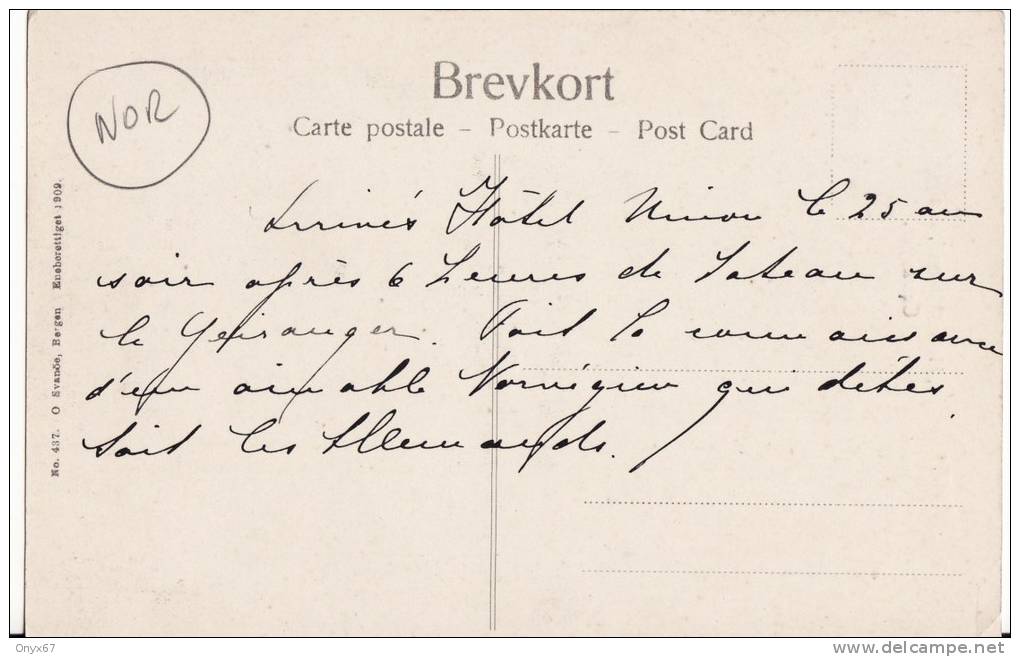 Brevkort
Carte postale – Postkarte – Post Card
NOR
No. 437. O Svanöe, Bergen Eneberettiget 1909.
Arrivés Hôtel Union le 25 au
soir après 6 heures de bateau sur
le Geiranger. Fait la connaissance
d'un aimable Norvégien qui détes
tait les Allemands.
Onyx67
www.delcampe.net